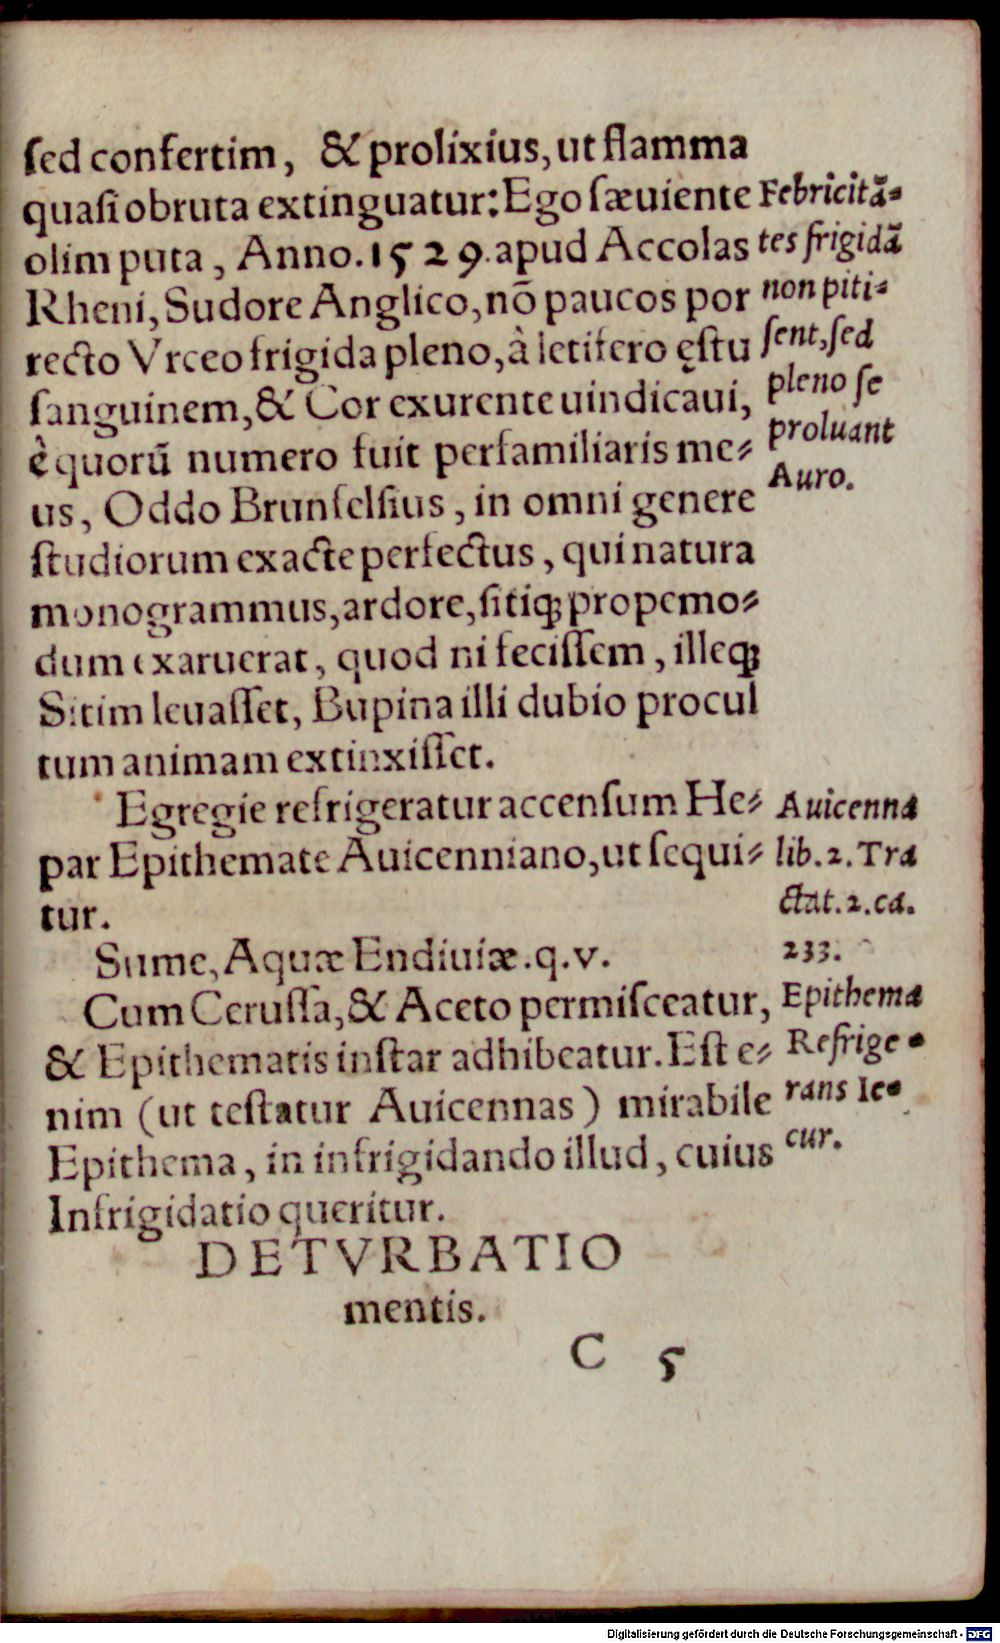 ſed confertim, & prolixius, ut flamma
quaſi obruta extinguatur: Ego ſæuiente
olim puta, Anno. 1529. apud Accolas
Rheni, Sudore Anglico, nõ paucos por
recto Vrceo frigida pleno, à letifero ęſtu
ſanguinem, & Cor exurente uindicaui,
è quorũ numero fuit perfamiliaris me⸗
us, Oddo Brunfelſius, in omni genere
ſtudiorum exacte perfectus, qui natura
monogrammus, ardore, ſitiq; propemo⸗
dum exaruerat, quod ni feciſſem, illeq;
Sitim leuaſſet, Bupina illi dubio procul
tum animam extinxiſſet.
Febricitã⸗
tes frigidã
non piti⸗
ſent, ſed
pleno ſe
proluant
Auro.
Egregie refrigeratur accenſum He⸗
par Epithemate Auicenniano, ut ſequi⸗
tur.
Sume, Aquæ Endiuiæ. q. v.
Cum Ceruſſa, & Aceto permiſceatur,
& Epithematis inſtar adhibeatur. Eſt e⸗
nim (ut teſtatur Auicennas) mirabile
Epithema, in infrigidando illud, cuius
Infrigidatio queritur.
Auicenna
lib. 2. Tra
ctat. 2. ca.
233.
Epithema
Refrige⸗
rans Ie⸗
cur.
DETVRBATIO
mentis.
C 5
Digitalisierung gefördert durch die Deutsche Forschungsgemeinschaft - DFG